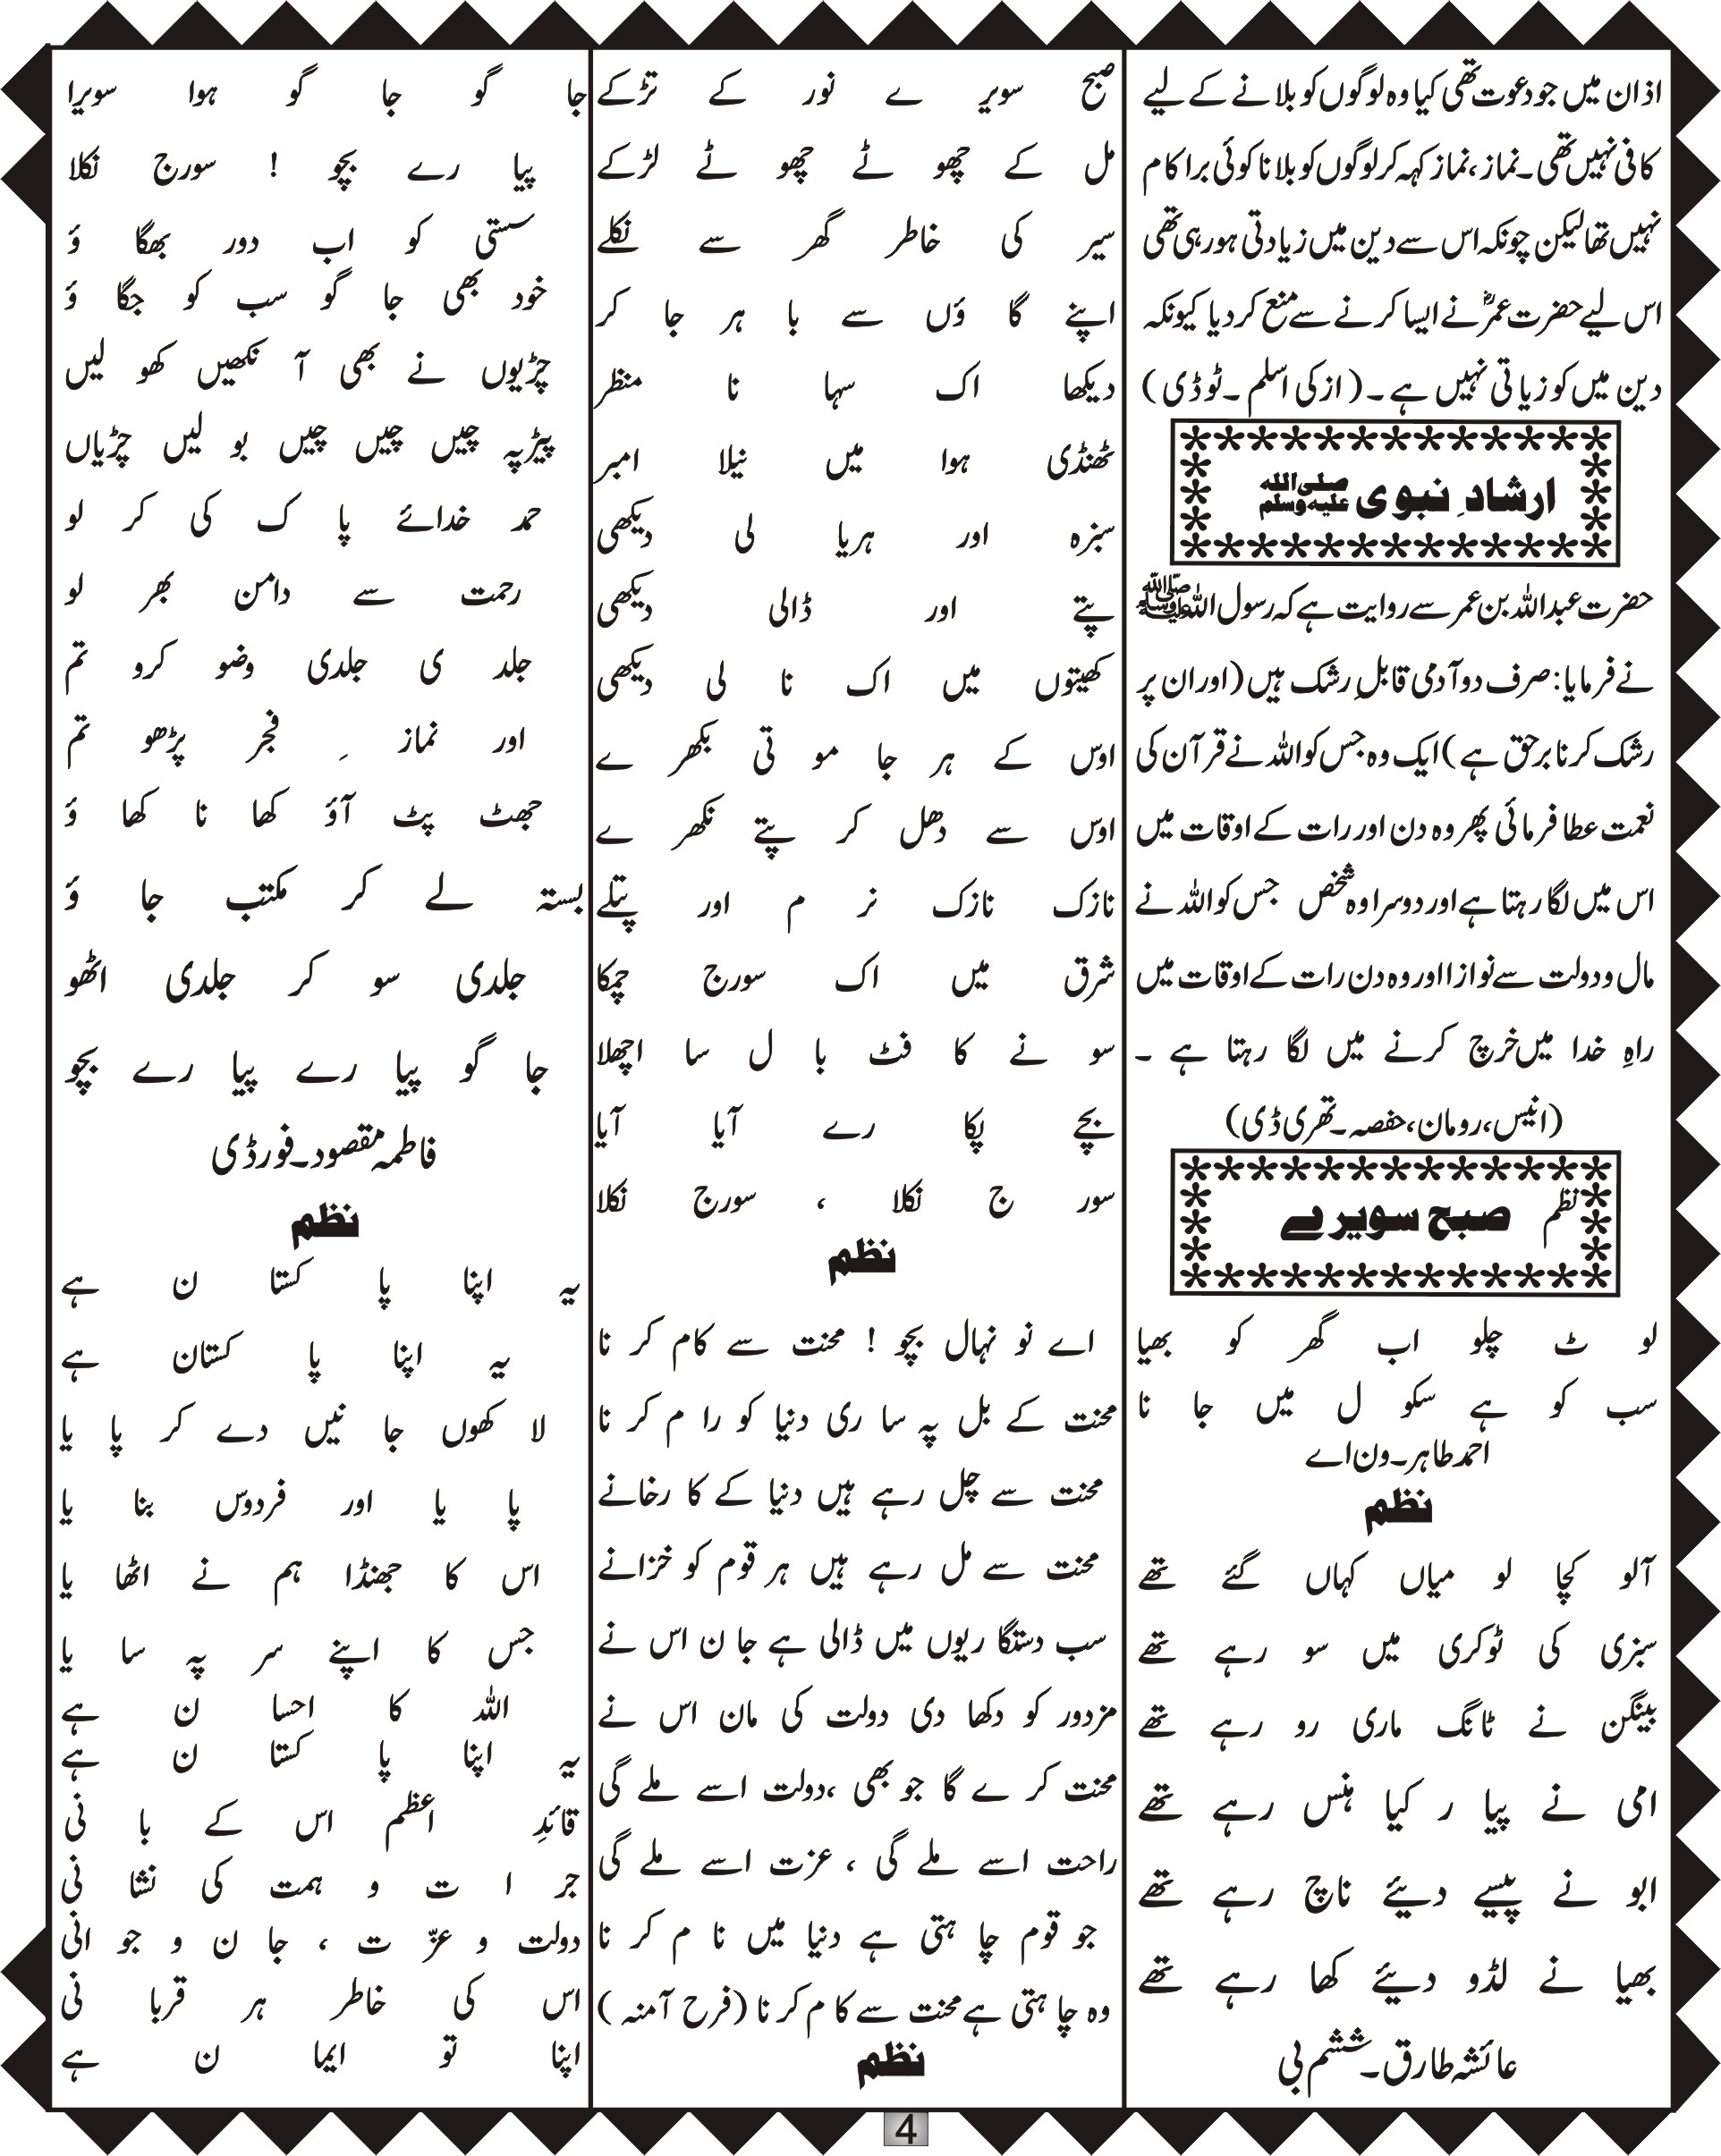 اذان میں جو دعوت تھی کیا وہ لوگوں کو بلانے کے لیے
کافی نہیں تھی۔نماز،نماز کہہ کر لوگوں کو بلانا کوئی برا کام
نہیں تھا لیکن چونکہ اس سے دین میں زیادتی ہو رہی تھی
اس لیے حضرت عمرؓ نے ایسا کرنے سے منع کر دیا کیونکہ
دین میں کو زیاتی نہیں ہے۔(ازکی اسلم۔ٹو ڈی)
ارشادِ نبوی صلی اللہ علیہ وسلم
حضرت عبداللہ بن عمر سے روایت ہے کہ رسول اللہ ﷺ
نے فرمایا:صرف دو آدمی قابلِ رشک ہیں(اور ان پر
رشک کرنا برحق ہے)ایک وہ جس کو اللہ نے قرآن کی
نعمت عطا فرمائی پھر وہ دن اور رات کے اوقات میں
اس میں لگا رہتا ہے اور دوسرا وہ شخص جس کو اللہ نے
مال و دولت سے نوازا اور وہ دن رات کے اوقات میں
راہِ خدا میں خرچ کرنے میں لگا رہتا ہے ۔
(انیس،رومان،حفصہ۔تھری ڈی)
نظم صبح سویرے
لو ٹ چلو اب گھر کو بھیا
سب کو ہے سکو ل میں جا نا
احمد طاہر۔ون اے
نظم
آلو کچا لو میاں کہاں گئے تھے
سبزی کی ٹوکری میں سو رہے تھے
بینگن نے ٹانگ ماری رو رہے تھے
امی نے پیا ر کیا ہنس رہے تھے
ابو نے پیسے دیئے ناچ رہے تھے
بھیا نے لڈو دیئے کھا رہے تھے
عائشہ طارق۔ششم بی
صبح سویر ے نور کے تڑکے
مل کے چھو ٹے چھو ٹے لڑکے
سیر کی خاطر گھر سے نکلے
اپنے گا ؤں سے با ہر جا کر
دیکھا اک سہا نا منظر
ٹھنڈی ہوا میں نیلا امبر
سبزہ اور ہریا لی دیکھی
پتے اور ڈالی دیکھی
کھیتوں میں اک نا لی دیکھی
اوس کے ہر جا مو تی بکھر ے
اوس سے دھل کر پتے نکھر ے
نازک نازک نر م اور پتلے
شرق میں اک سورج چمکا
سو نے کا فٹ با ل سا اچھلا
بچے پکا رے آیا آیا
سور ج نکلا ، سورج نکلا
نظم
اے نو نہال بچو ! محنت سے کام کر نا
محنت کے بل پہ سا ری دنیا کو را م کر نا
محنت سے چل رہے ہیں دنیا کے کا رخانے
محنت سے مل رہے ہیں ہر قوم کو خزانے
سب دستگا ریوں میں ڈالی ہے جا ن اس نے
مزدور کو دکھا دی دولت کی مان اس نے
محنت کر ے گا جو بھی ،دولت اسے ملے گی
راحت اسے ملے گی ، عزت اسے ملے گی
جو قوم چا ہتی ہے دنیا میں نا م کر نا
وہ چا ہتی ہے محنت سے کا م کر نا (فرح آمنہ )
نظم
جا گو جا گو ہوا سویرا
پیا رے بچو ! سورج نکلا
سستی کو اب دور بھگا ؤ
خود بھی جا گو سب کو جگا ؤ
چڑیوں نے بھی آ نکھیں کھو لیں
پیڑپہ چیں چیں چیں بو لیں چڑیاں
حمد خدائے پا ک کی کر لو
رحمت سے دامن بھر لو
جلد ی جلدی وضو کرو تم
اور نماز ِ فجر پڑھو تم
جھٹ پٹ آؤ کھا نا کھا ؤ
بستہ لے کر مکتب جا ؤ
جلدی سو کر جلدی اٹھو
جا گو پیا رے پیا رے بچو
فاطمہ مقصود۔فور ڈی
نظم
یہ اپنا پا کستا ن ہے
یہ اپنا پا کستان ہے
لا کھوں جا نیں دے کر پا یا
پا یا اور فردوس بنا یا
اس کا جھنڈا ہم نے اٹھا یا
جس کا اپنے سر پہ سا یا
اللہ کا احسا ن ہے
یہ اپنا پا کستا ن ہے
قائدِ اعظم اس کے با نی
جر ا ت و ہمت کی نشا نی
دولت و عزّ ت ، جا ن و جو انی
اس کی خاطر ہر قربا نی
اپنا تو ایما ن ہے
4